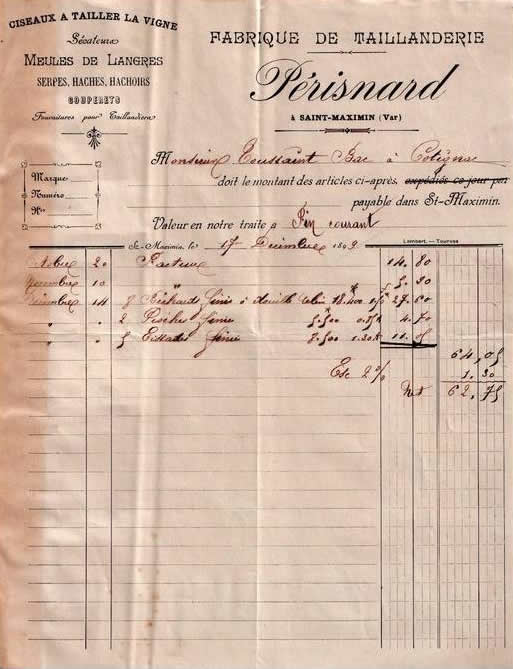 CISEAUX A TAILLER LA VIGNE
Sécateurs
MEULES DE LANGRES
SERPES, HACHES, HACHOIRS
COUPERETS
Fournitures pour Taillandiers
FABRIQUE DE TAILLANDERIE
Périsnard
à SAINT-MAXIMIN (Var)
Marque
Numéro
Nos
Monsieur Toussaint Bac à Cotignac
doit le montant des articles ci-après, expédiés ce jour par
payable dans St-Maximin.
Valeur en notre traite à Fin courant
Lambert. — Tourves
St-Maximin, le 17 Décembre 1809
20 Facture 14. 80
10 " 5. 30
Décembre 14 8 à douille 18.400 27.60
" " 2 Pioches 5.500 4.70
" " 5 7.500 1.30 11.05
64,05
Esc 2 % 1.30
Net 62,75